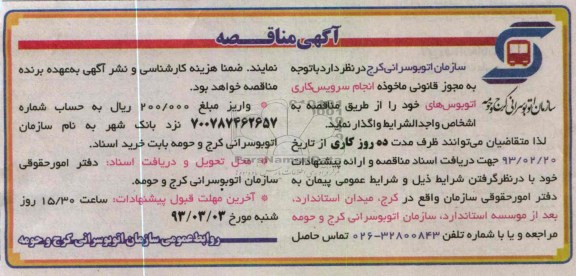 آگهی مناقـــصه
سازمان اتوبوسرانی کرج و حومه
سازمان اتوبوسرانی کرج در نظر دارد با توجه
به مجوز قانونی ماخوذه انجام سرویس‌کاری
اتوبوس‌های خود را از طریق مناقصه به
اشخاص واجدالشرایط واگذار نماید.
لذا متقاضیان می‌توانند ظرف مدت ده روز کاری از تاریخ
۹۳/۰۲/۲۰ جهت دریافت اسناد مناقصه و ارائه پیشنهادات
خود با درنظرگرفتن شرایط ذیل و شرایط عمومی پیمان به
دفتر امورحقوقی سازمان واقع در کرج، میدان استاندارد،
بعد از موسسه استاندارد، سازمان اتوبوسرانی کرج و حومه
مراجعه و یا با شماره تلفن ۳۲۸۰۰۸۴۳-۰۲۶ تماس حاصل
نمایند. ضمنا هزینه کارشناسی و نشر آگهی به‌عهده برنده
مناقصه خواهد بود.
* واریز مبلغ ۲۰۰/۰۰۰ ریال به حساب شماره
۷۰۰۷۸۷۴۶۳۶۵۷ نزد بانک شهر به نام سازمان
اتوبوسرانی کرج و حومه بابت خرید اسناد.
* محل تحویل و دریافت اسناد: دفتر امورحقوقی
سازمان اتوبوسرانی کرج و حومه.
* آخرین مهلت قبول پیشنهادات: ساعت ۱۵/۳۰ روز
شنبه مورخ ۹۳/۰۳/۰۳
روابط عمومی سازمان اتوبوسرانی کرج و حومه